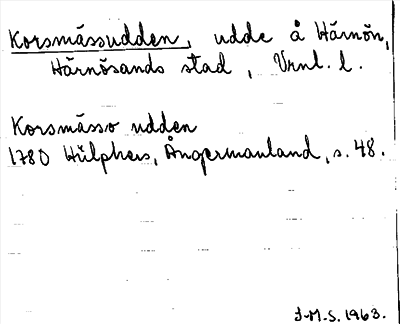 Korsmässudden, udde å Härnön,
Härnösands stad, Vrnl. l.
Korsmässo udden
1780 Hülphers, Ångermanland, s. 48.
J.M.S. 1963.